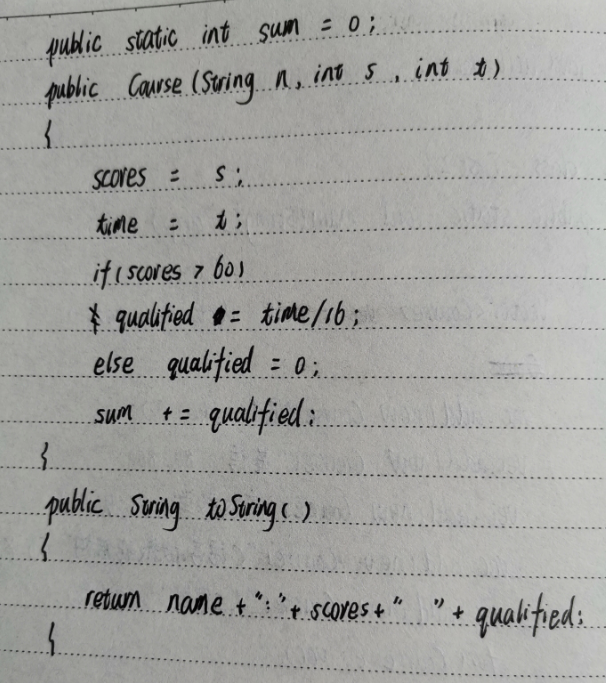 public static int sum = 0;
public Course (String n, int s, int t)
{
scores = s;
time = t;
if (scores > 60)
qualified = time/16;
else qualified = 0;
sum += qualified;
}
public String toString()
{
return name + ":" + scores + " " + qualified;
}